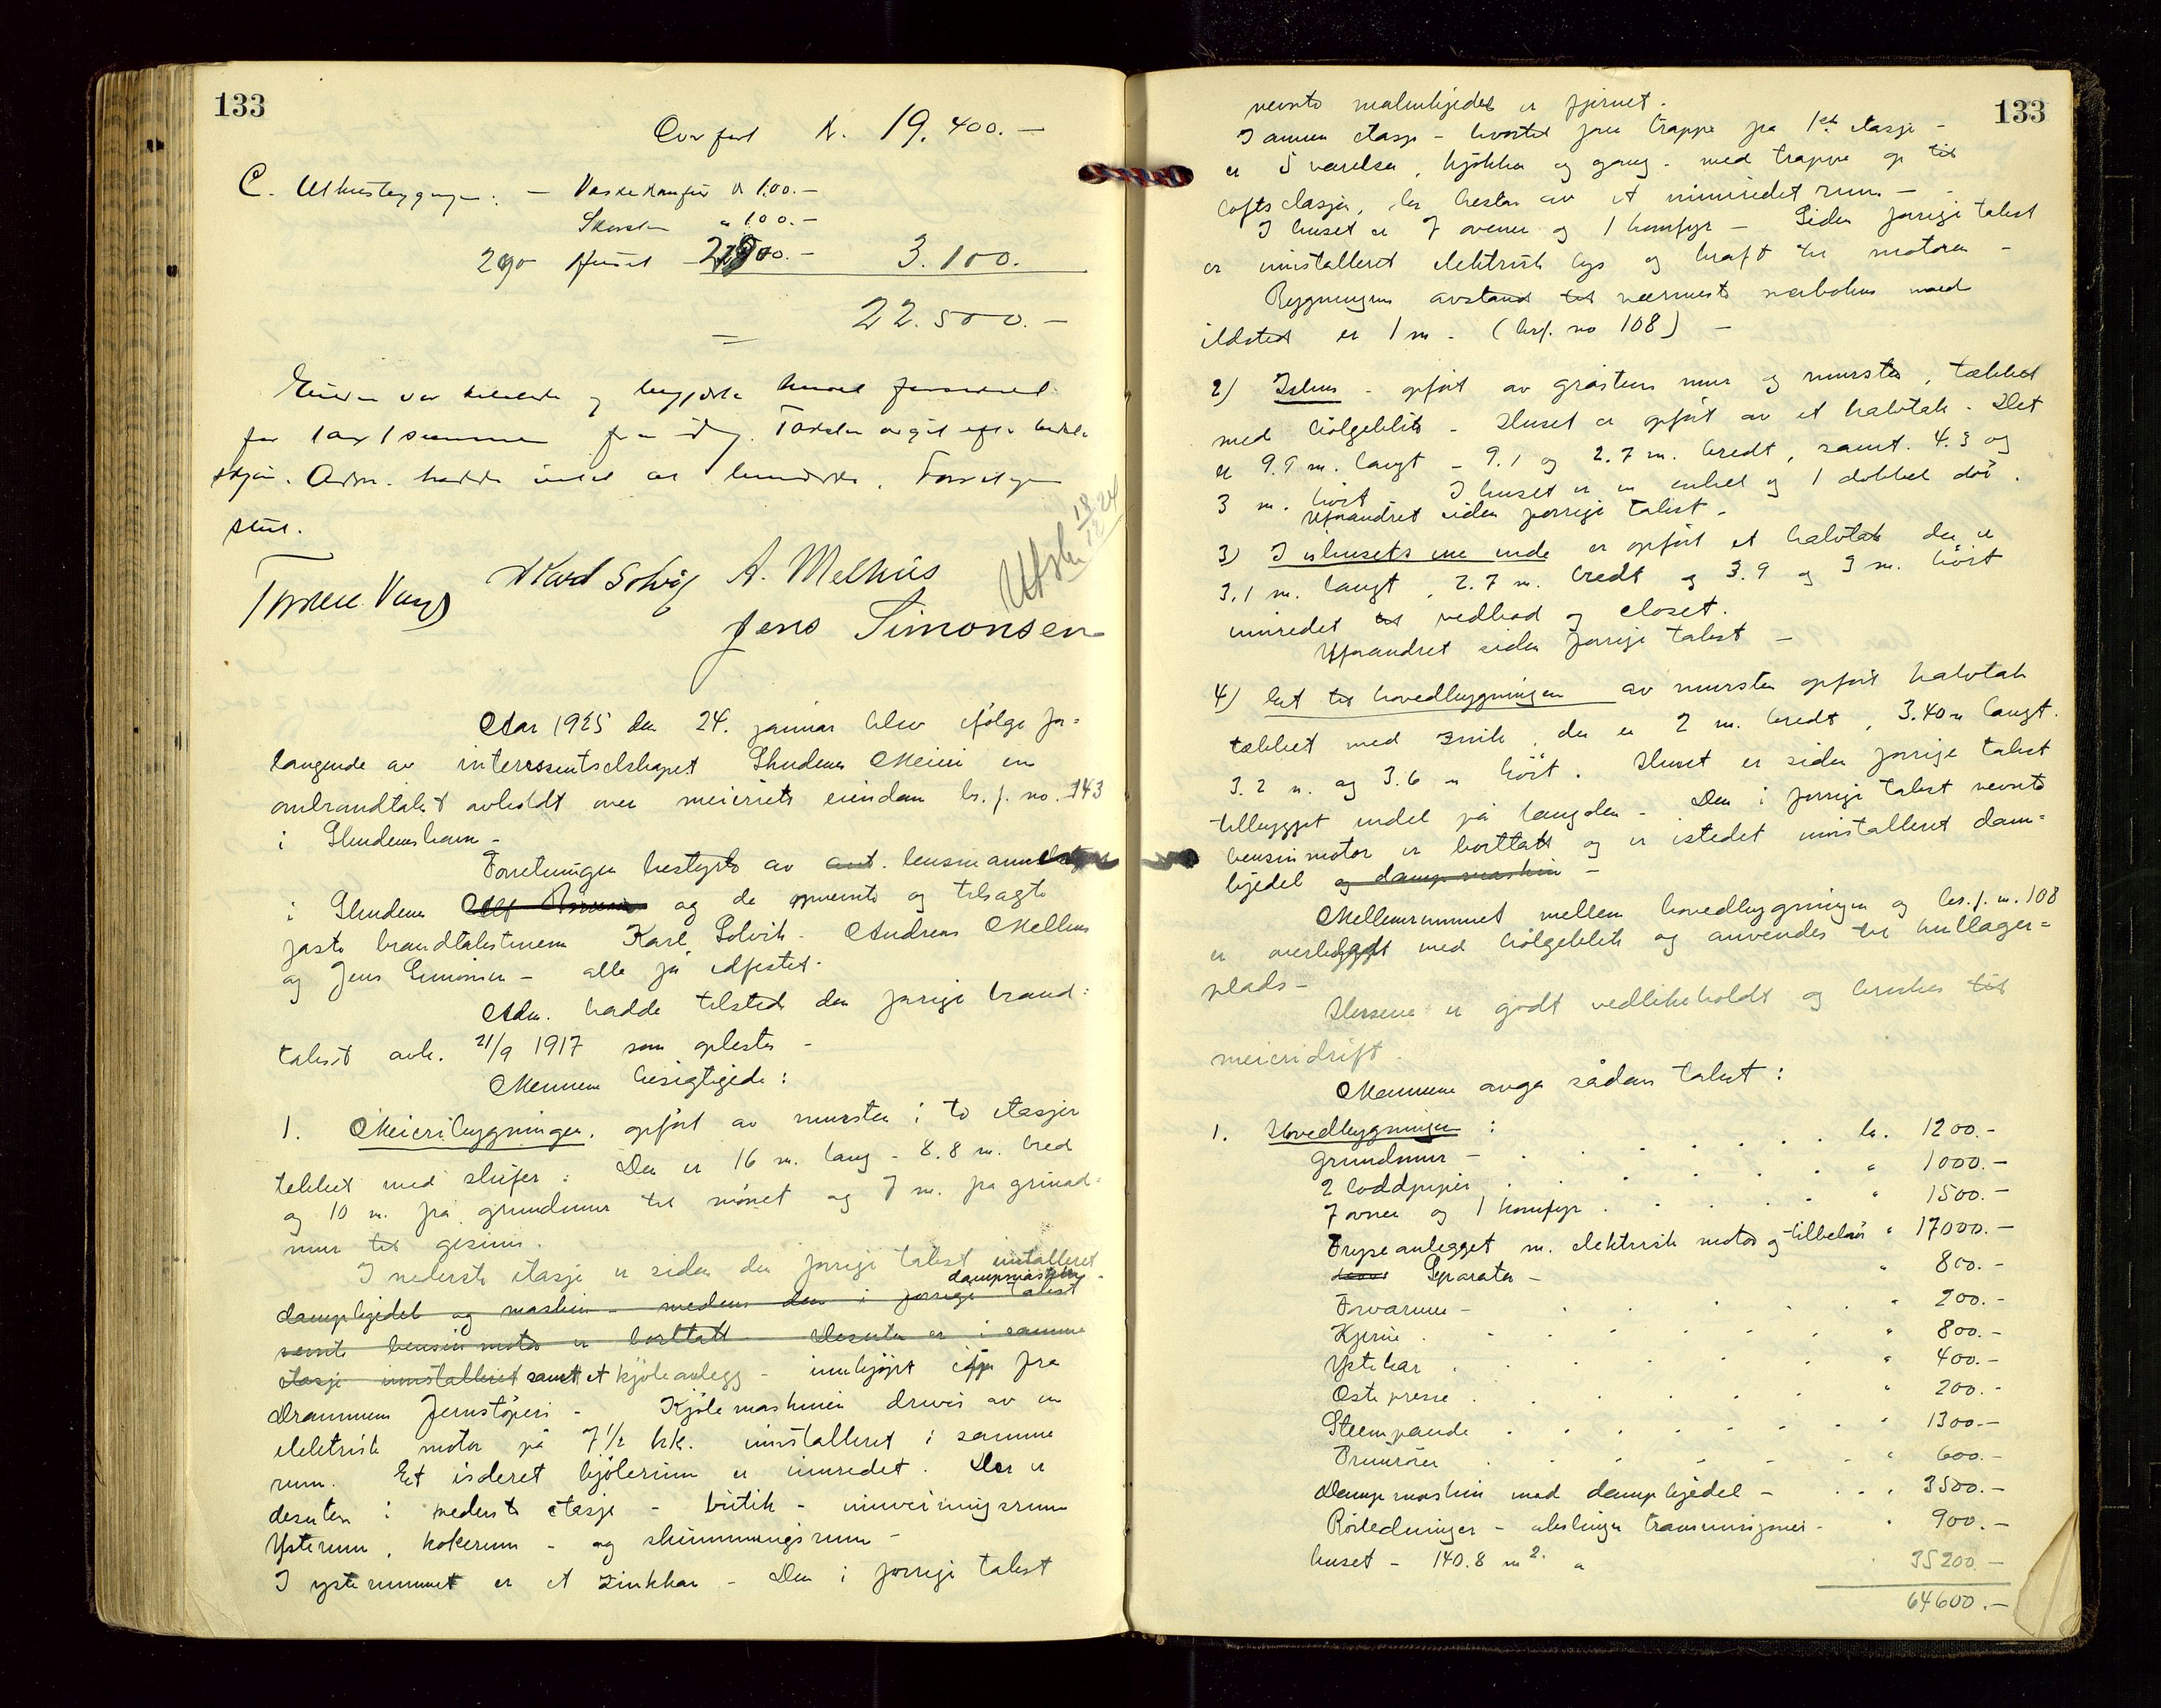 133
Overført kr. 19.400.—
C. Uthusbygningen: — Vaskekomfur kr 100.—
Skorsten " 100.—
290 Huset 2900.— 3.100.
22.500.—
Eieren var tilstede og begjærte huset
for summen fra idag. Taksten avgit efter bedste
skjøn. Adm. hadde intet at bemerke. Forretningen
slut.
Karl Solvig A. Melhus
Jens Simonsen
Utskr. 18/12 24
Aar 1925 den 24. januar blev ifølge for=
langende av interessentselskapet Skudenes Meieri en
ombrandtakst avholdt over meieriets eiendom br.f. no. 143
i Skudeneshavn -
Forretningen bestyrtes av lensmannen
i Skudenes og de opnevnte og tilsagte
faste brandtakstmenn Karl Solvik - Andreas Melhus
og Jens Simonsen - alle før edfestet.
Adm. hadde tilstede den forrige brand=
takst avh. 21/9 1917 som oplestes -
Mennene besigtigede:
1. Meieribygningen, opført av mursten i to etasjer
tekket med skifer: Den er 16 m. lang - 8.8 m. bred
og 10 m. fra grundmur til mønet og 7 m. fra grund=
mur til gesims.
I nederste etasje er siden den forrige takst installeret
dampmaskin
dampkjedel og maskin - medens den i forrige takst
nevnte bensinmotor er borttatt - Desuten er i samme
etasje innstalleret samt et kjøleanlegg - innkjøpt fra
Drammens Jernstøperi - Kjølemaskinen drives av en
elektrisk motor på 7½ hk. innstalleret i samme
rum. Et isoleret kjølerum er innredet. Der er
desuten i nederste etasje - butik - innveiningsrum
Ysterum, kokerum - og skummningsrum -
I ysterummet er et zinkkar - Den i forrige takst
133
nevnte malmkjedel er fjernet.
I annen etasje - hvortil fører trappe fra 1ste etasje -
er 5 værelser, kjøkken og gang - med trappe op til
loftsetasjen, der bestar av et uinnredet rum -
I huset er 7 ovner og 1 komfyr - Siden forrige takst
er innstalleret elektrisk lys og kraft til motoren -
Bygningens avstand til nærmeste nabohus med
ildsted er 1 m - (br.f. no 108) -
2) Ishus - opført av gråstens mur og mursten, tækket
med bølgeblik - Huset er opført av et halvtak - Det
er 9.9 m. langt - 9.1 og 2.7 m. bredt, samt 4.3 og
3 m. høit I huset er en enkel og 1 dobbel dør.
Uforandret siden forrige takst -
3) I ishusets ene ende er opført et halvtak der er
3.1 m. langt, 2.7 m. bredt og 3.9 og 3 m. høit
innredet til vedbod og closet.
Uforandret siden forrige takst -
4) Ent til hovedbygningen av mursten opført halvtak
tækket med zink, der er 2 m. bredt, 3.40 m langt.
3.2 m. og 3.6 m høit. Huset er siden forrige takst
tilbygget endel på længden - Den i forrige takst nevnte
bensinmotor er borttatt og er istedet innstalleret dam=
kjedel og dampmaskin -
Mellemrummet mellem hovedbygningen og br.f. n. 108
er overbygget med bølgeblik og anvendes til kullager=
plads -
Husene er godt vedlikeholdt og brukes til
meieridrift.
Mennene avga sådan takst:
1. Hovedbygningen:
Grundmur - kr. 1200.-
2 loddpiper " 1000.-
7 ovner og 1 komfyr " 1500.-
Fryseanlegget m. elektrisk motor og tilbehør " 17000.-
Separator - " 800.-
Forvarmer - " 200.-
Kjerne " 800.-
Ystekar " 400.-
Ostepresse " 200.-
Steempande " 1300.-
" 600.-
Dampmaskin med dampkjedel - " 3500.-
Rørledninger - akslinger transmisjoner - " 900.-
huset - 140.8 m². " 35200.-
64600.-